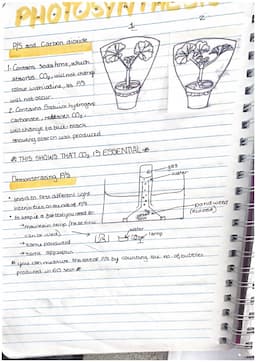 PHOTOSYNTHESIS
1
2
P/S and Carbon dioxide
1. Contains Soda lime, which
absorbs CO2, will not change
colour with iodine, as P/S
will not occur.
2. Contains Sodium hydrogen
carbonate, CO2,
will change to blue-black
showing starch was produced
* THIS SHOWS THAT CO2 IS ESSENTIAL *
Demonstrating P/S
gas
water
pondweed
(elodea)
• used to test different light
intensities on the rate of P/S
• to keep it a fair test you need to:
→ maintain temp
can be used)
→ same pondweed
→ same apparatus
water
lamp
* you can measure the rate of P/S by counting the no. of bubbles
produced in 60 sec *